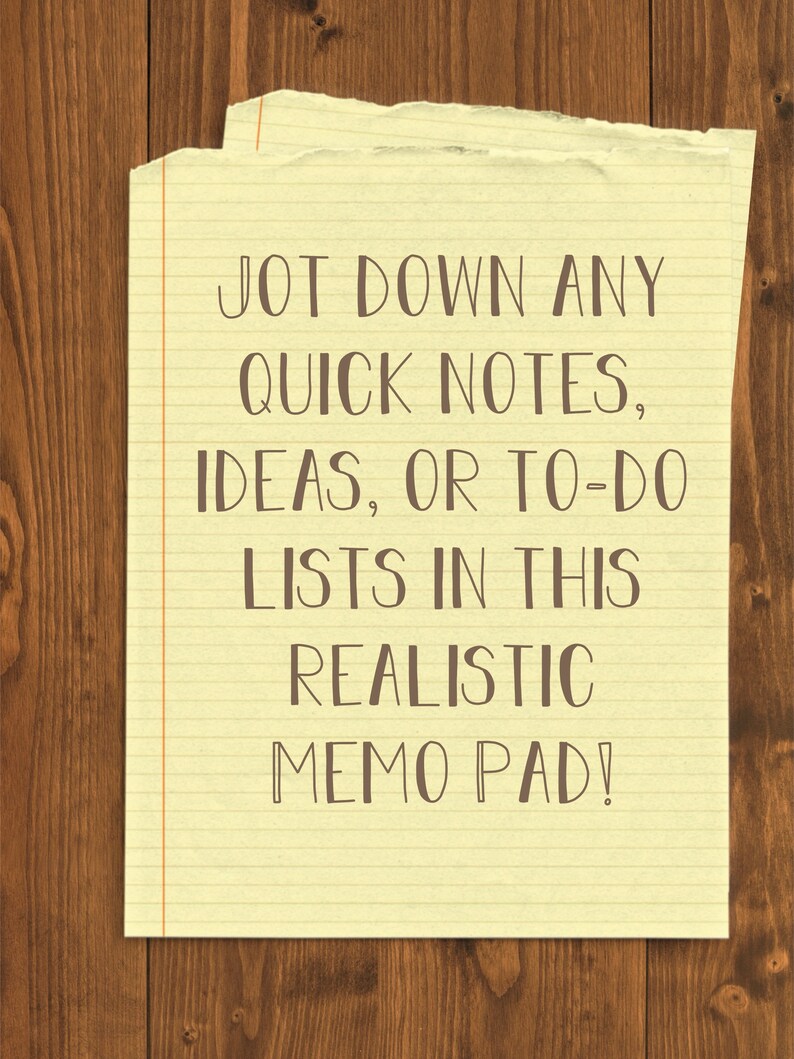 JOT DOWN ANY
QUICK NOTES,
IDEAS, OR TO-DO
LISTS IN THIS
REALISTIC
MEMO PAD!